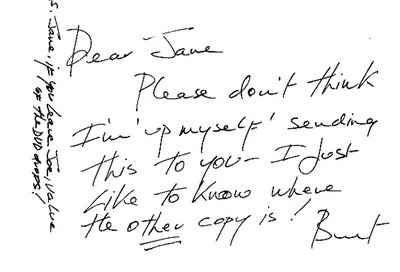 Dear Jane
Please don't think
I'm 'up myself' sending
this to you - I just
like to know where
the other copy is!
S. Jane, if you leave Joe, value
of the DVD drops!